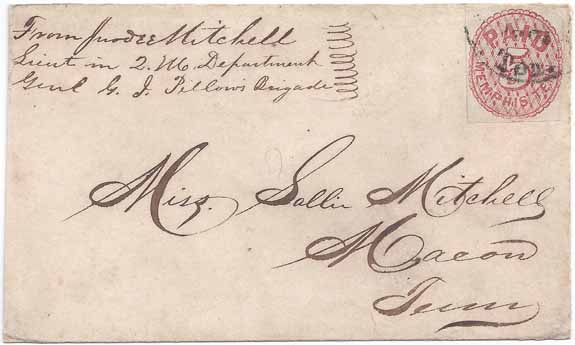 From Jno C Mitchell
Lieut in Q. M. Department
Genl G. J. Pillows Brigade
PAID
5
MEMPHIS, TE
Miss. Sallie Mitchell
Macon
Tenn